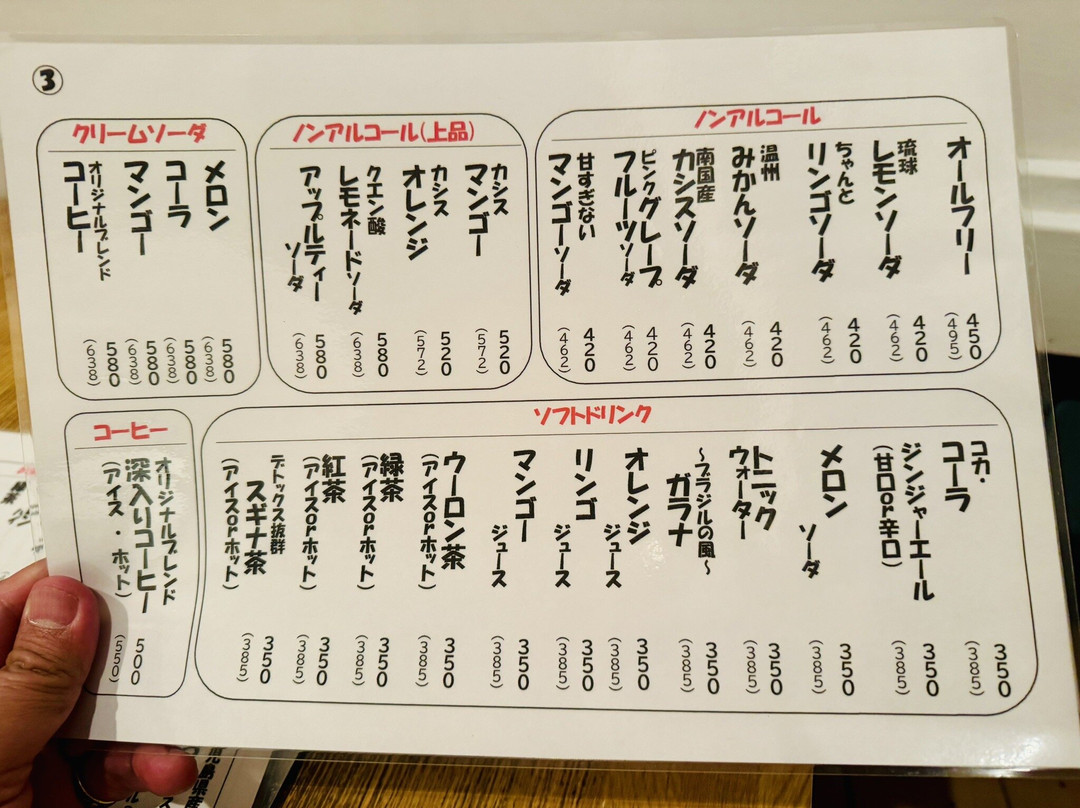 ③
ノンアルコール
オールフリー
450
(495)
琉球
レモンソーダ
420
(462)
ちゃんと
リンゴソーダ
420
(462)
温州
みかんソーダ
420
(462)
南国産
カシスソーダ
420
(462)
ピンクグレープ
フルーツソーダ
420
(462)
甘すぎない
マンゴーソーダ
420
(462)
ノンアルコール(上品)
カシス
マンゴー
520
(572)
カシス
オレンジ
520
(572)
クエン酸
レモネードソーダ
580
(638)
アップルティー
ソーダ
580
(638)
クリームソーダ
メロン
580
(638)
コーラ
580
(638)
マンゴー
580
(638)
オリジナルブレンド
コーヒー
580
(638)
ソフトドリンク
コカ・
コーラ
350
(385)
ジンジャーエール
(甘口or辛口)
350
(385)
メロン
ソーダ
350
(385)
トニック
ウォーター
350
(385)
~ブラジルの風~
ガラナ
350
(385)
オレンジ
ジュース
350
(385)
リンゴ
ジュース
350
(385)
マンゴー
ジュース
350
(385)
ウーロン茶
(アイスorホット)
350
(385)
緑茶
(アイスorホット)
350
(385)
紅茶
(アイスorホット)
350
(385)
デトックス抜群
スギナ茶
(アイスorホット)
350
(385)
コーヒー
オリジナルブレンド
深入りコーヒー
(アイス・ホット)
500
(550)